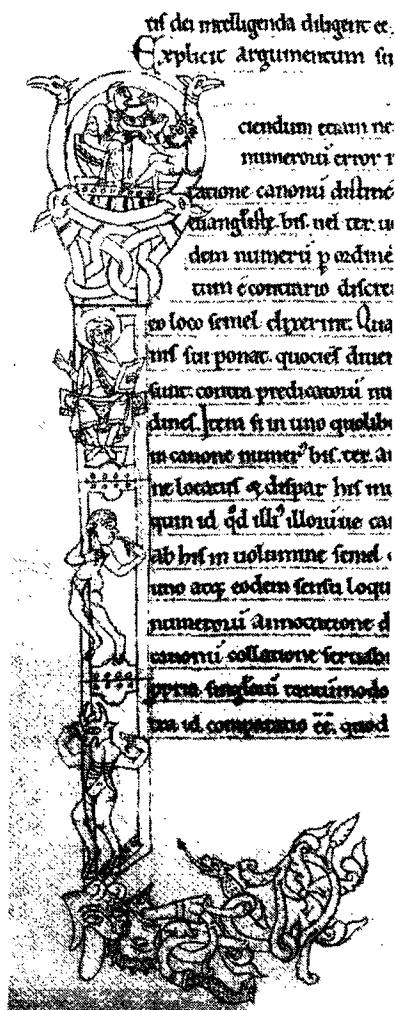 tis dei intelligenda diligent ee
Explicit argumentum su
ciendum etiam ne
numerorū error
ratione canonū distinc
euanglistę bis uel ter ue
dem numerū p ordinē
tum econtrario discre
eo loco semel dixerint. Qua
nis sui ponat. quocies diuer
sunt. contra predicatorū nu
dines. Item si in uno quolibe
in canone numer⁹ bis. ter. au
ne locatus & dispar his nu
quin id qd illi⁹ illorūue ca
ab his in uolumine semel
uno atq; eodem sensu loqu
numerorū annotatione d
canonū collatione
ppria singlorū tantūmodo
tra id comparatio ēē. quod